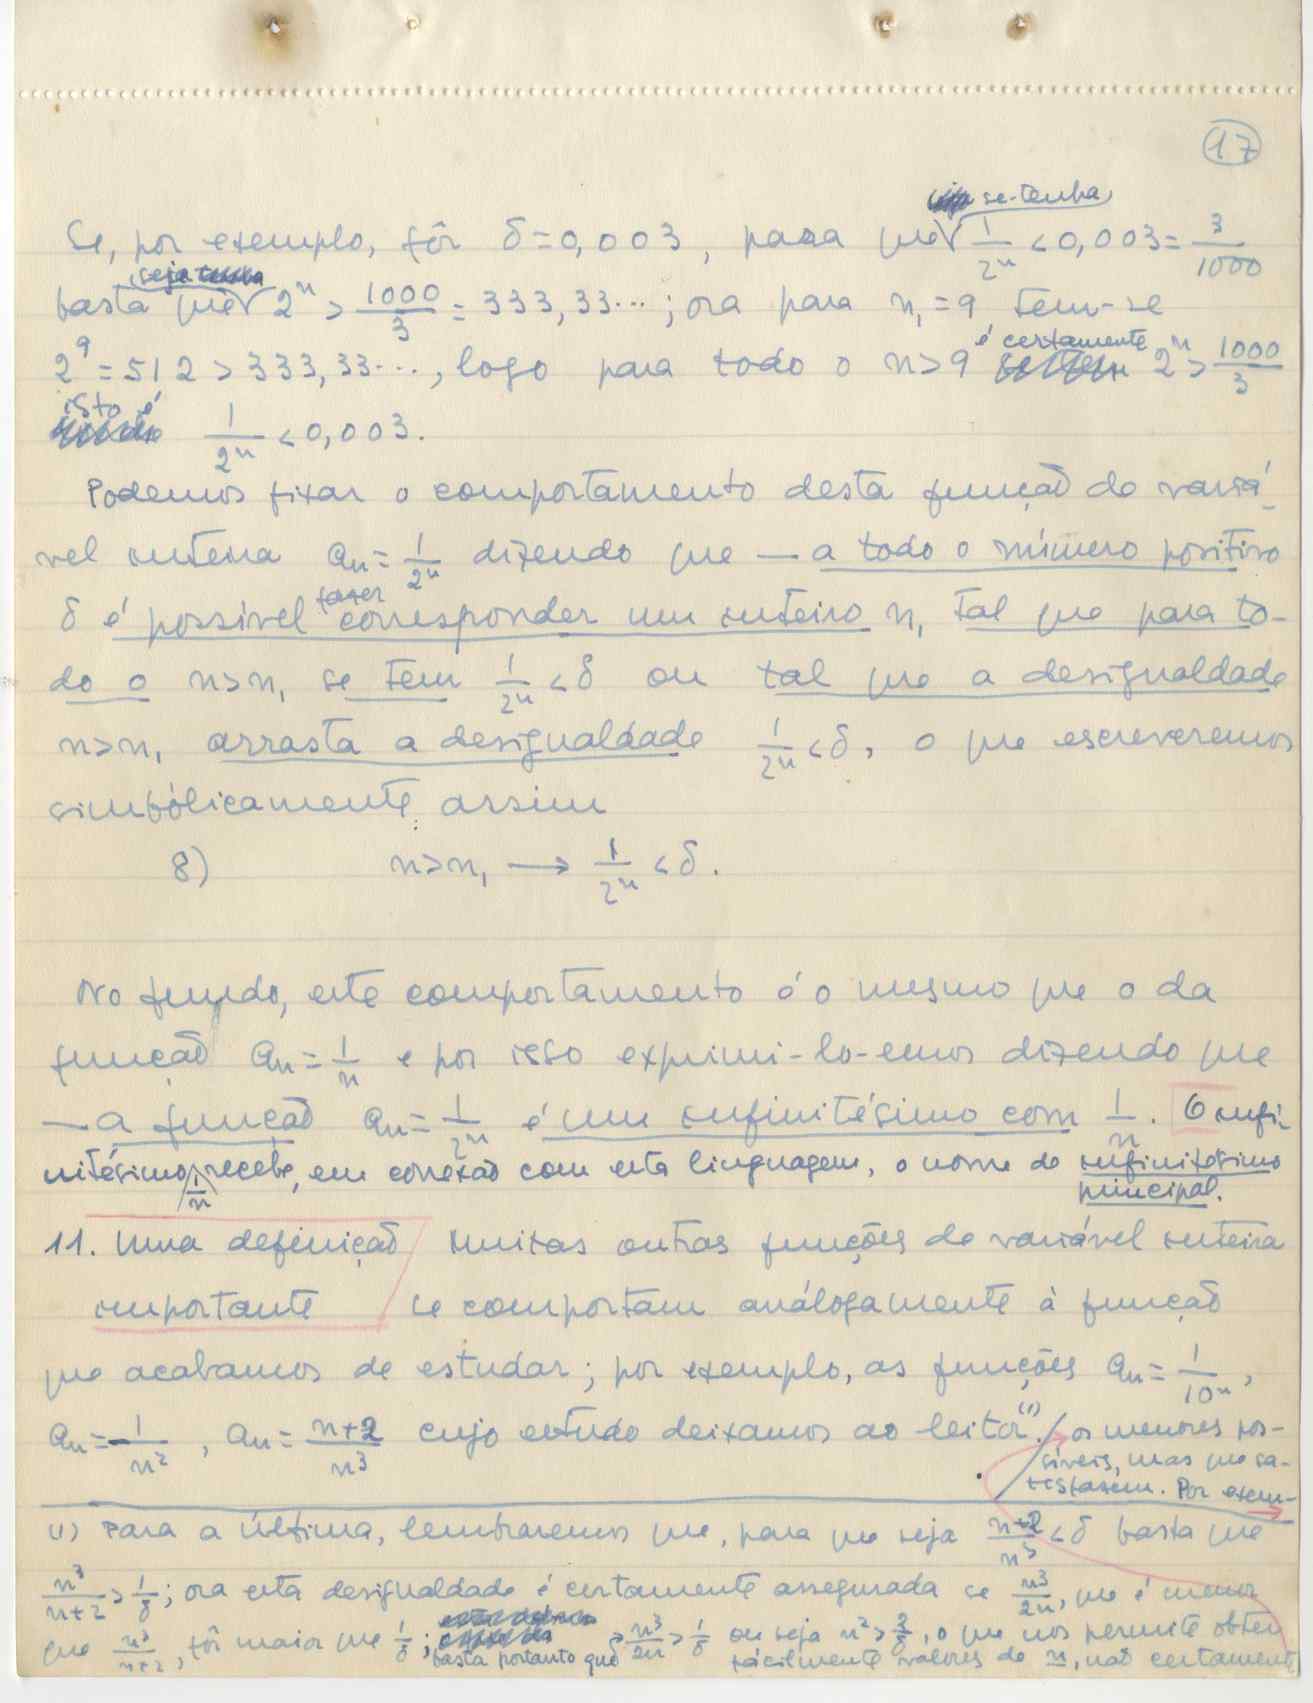 17
Se, por exemplo, fôr δ=0,003, para que se tenha 1/2ⁿ < 0,003 = 3/1000
basta que seja 2ⁿ > 1000/3 = 333,33...; ora para n₁=9 tem-se
2⁹ = 512 > 333,33..., logo para todo o n>9 é certamente 2ⁿ > 1000/3
isto é 1/2ⁿ < 0,003.
Podemos fixar o comportamento desta função de variá-
vel inteira aₙ = 1/2ⁿ dizendo que — a todo o número positivo
δ é possível fazer corresponder um inteiro n₁ tal que para to-
do o n>n₁ se tem 1/2ⁿ < δ ou tal que a desigualdade
n>n₁ arrasta a desigualdade 1/2ⁿ < δ, o que escreveremos
simbólicamente assim:
8) n>n₁ ⟶ 1/2ⁿ < δ.
No fundo, este comportamento é o mesmo que o da
função aₙ = 1/n e por isso exprimi-lo-emos dizendo que
— a função aₙ = 1/2ⁿ é um infinitésimo com 1/n. O infi-
nitésimo 1/n recebe, em conexão com esta linguagem, o nome de infinitésimo
principal.
11. Uma definição Muitas outras funções de variável inteira
importante se comportam análogamente à função
que acabamos de estudar; por exemplo, as funções aₙ = 1/10ⁿ,
aₙ = -1/n², aₙ = n+2/n³ cujo estudo deixamos ao leitor⁽¹⁾.
os menores pos-
síveis, mas que sa-
tisfazem. Por exem-
(1) Para a última, lembraremos que, para que seja n+2/n³ < δ basta que
n³/n+2 > 1/δ; ora esta desigualdade é certamente assegurada se n³/2n, que é menor
que n³/n+2, fôr maior que 1/δ; basta portanto que n³/2n > 1/δ ou seja n² > 2/δ, o que nos permite obter
fácilmente valores de n, não certamente